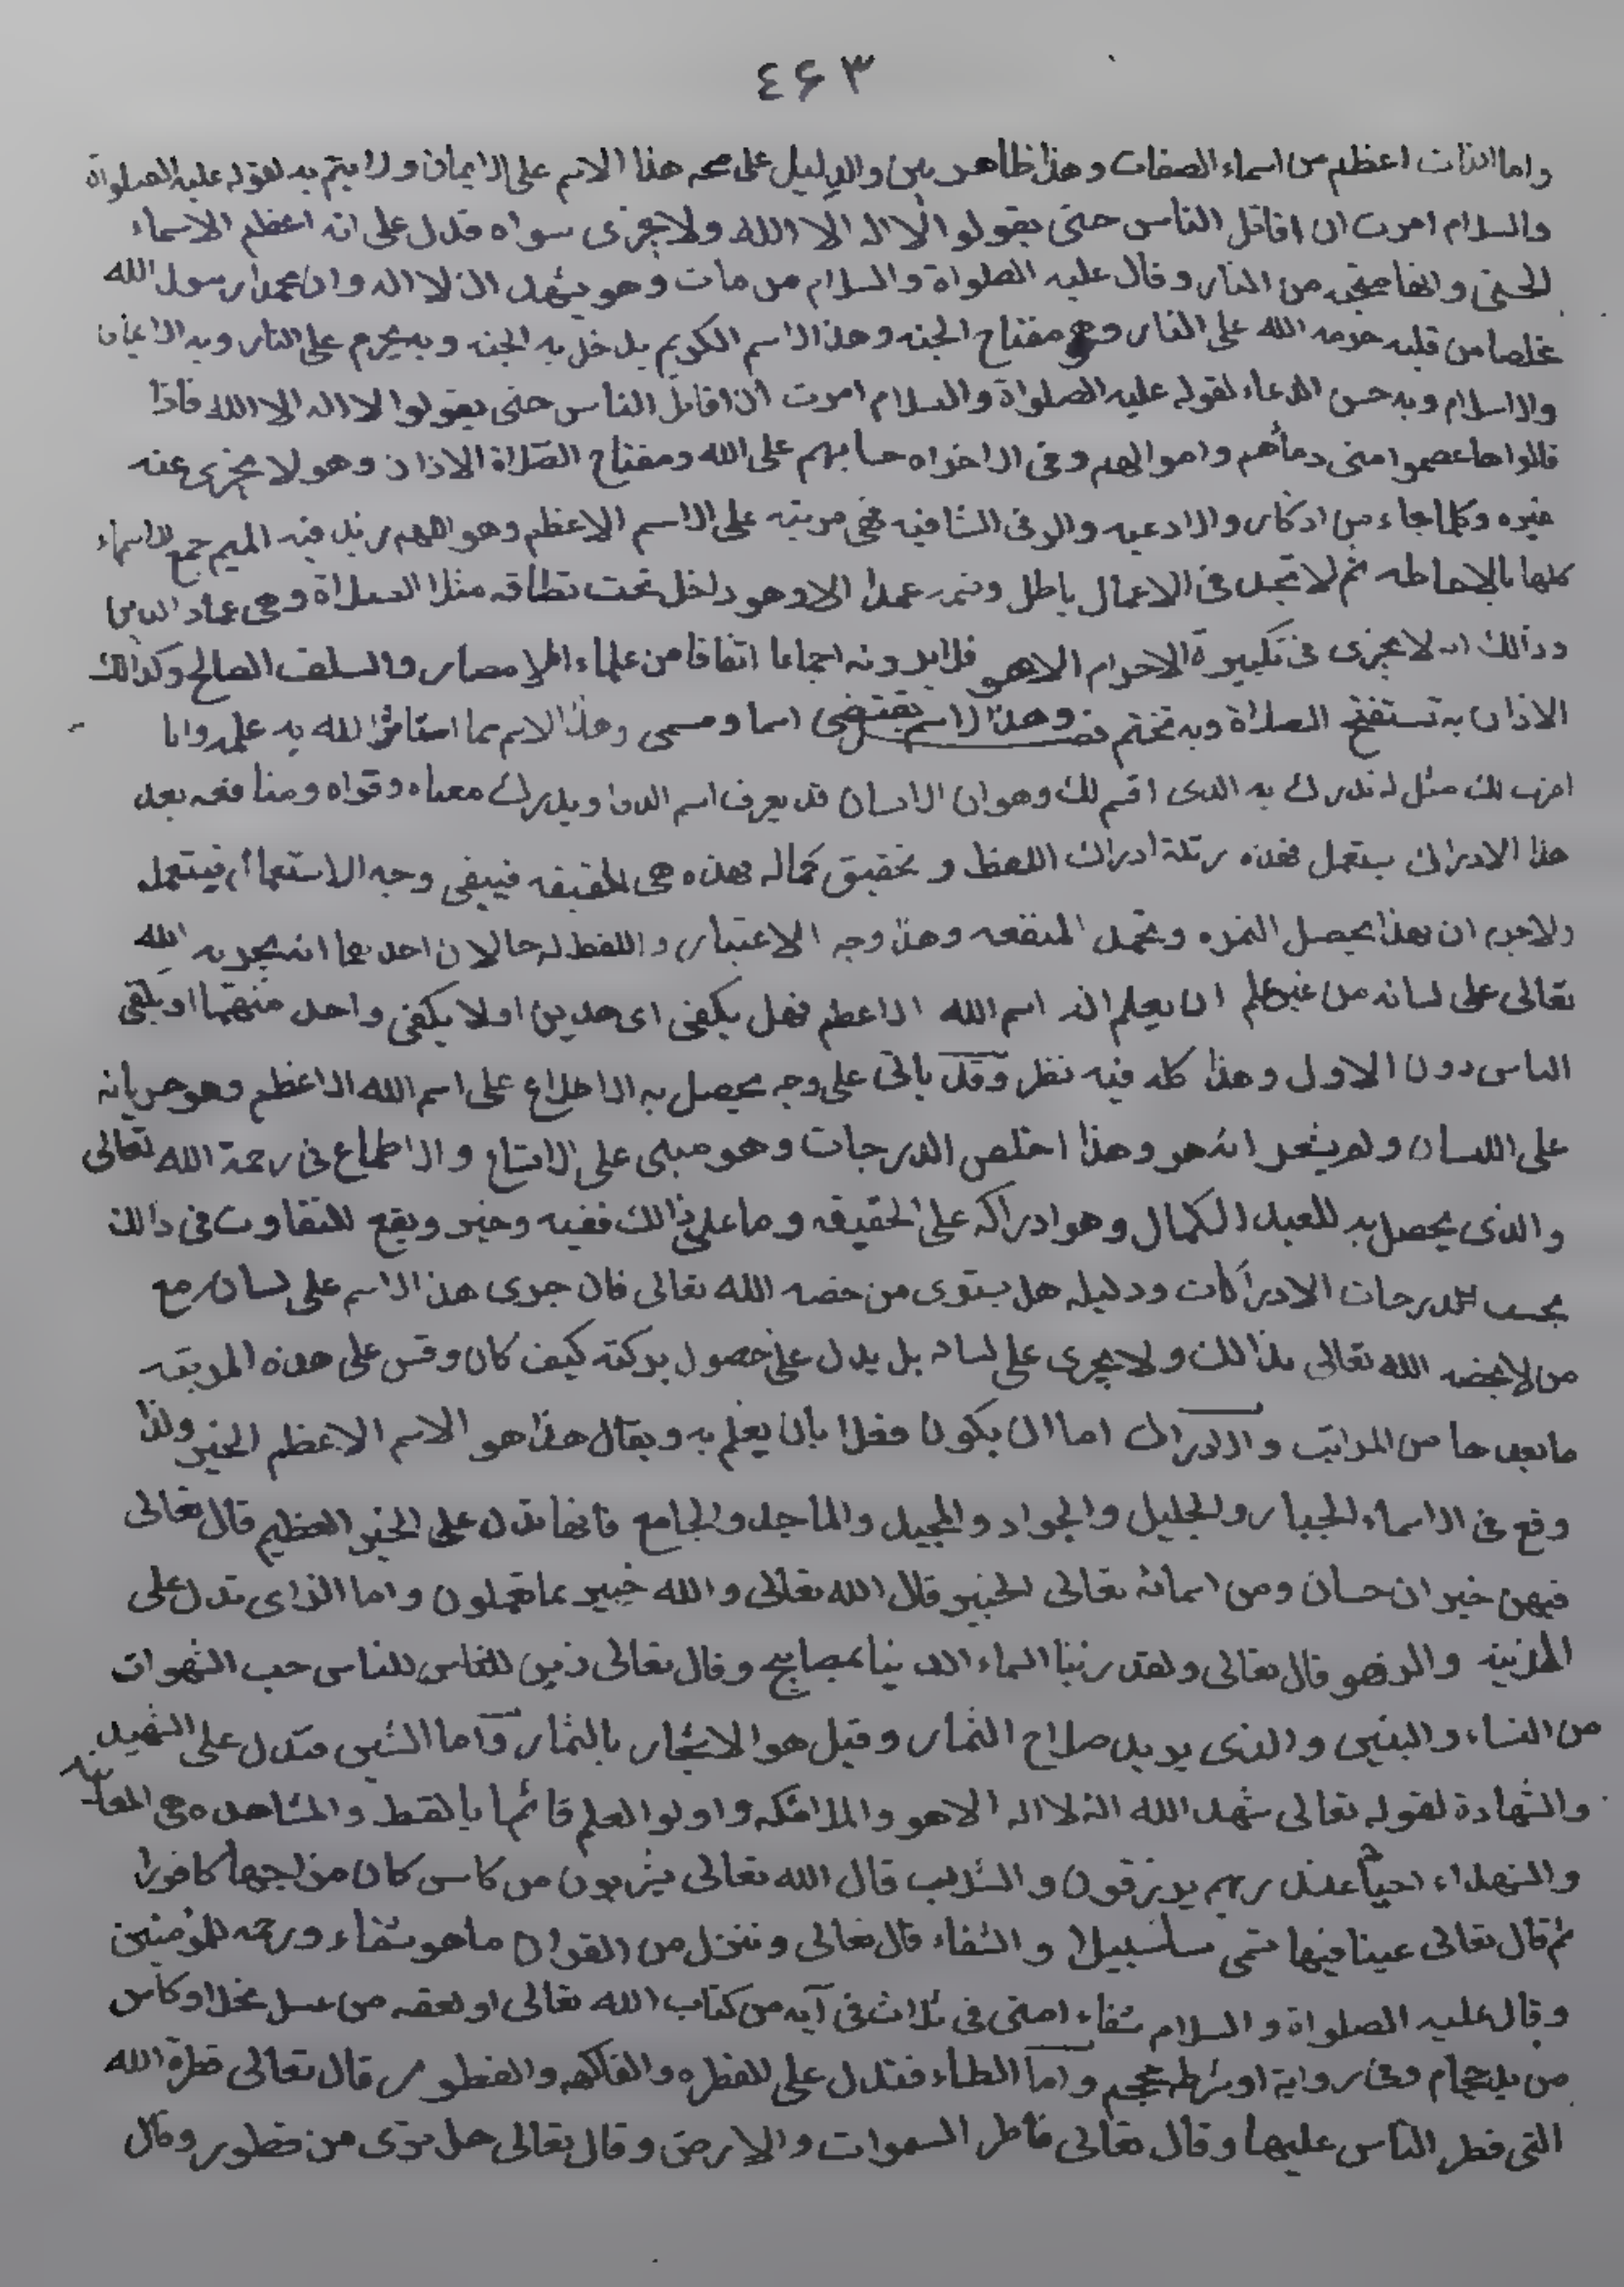 ٤٦٣
واما الذات اعظم من اسماء الصفات وهذا ظاهر بين والدليل على صحه هذا الاسم على الايمان ولا يتم به لقوله عليه الصلواة
والسلام امرت ان اقاتل الناس حتى يقولو الا اله الا الله ولا يجزى سواه فدل على انه اعظم الاسماء
الحسنى وانها منجيه من النار وقال عليه الصلواة والسلام من مات وهو يشهد ان لا اله وان محمدا رسول الله
مخلصا من قلبه حرمه الله على النار وهى مفتاح الجنه وهذا الاسم الكريم يدخل به الجنه وبه يحرم على النار وبه الايمان
والاسلام وبه حسن الدعاء لقوله عليه الصلواة والسلام امرت ان اقاتل الناس حتى يقولوا لا اله الا الله فاذا
قالوا ها عصموا منى دمائهم واموالهم وفى الاخراه حسابهم على الله ومفتاح الصلاة الاذان وهو لا يجزى عنه
غيره وكلما جاء من اذكار والادعيه والرقى الشافيه فهى مرتبه على الاسم الاعظم وهو اللهم زيد فيه الميم جمع الاسماء
كلها بالاحاطه ثم لا تجد فى الاعمال باطل وثمره عملا الا وهو داخل تحت نطاقه مثلا الصلاة وهى عماد الدين
وذالك انه لا يجزى فى تكبيرة الاحرام الا هو فلا بدونه اجماعا اتفاقا من علماء الامصار والسلف الصالح وكذالك
الاذان به تستفتح الصلاة وبه تختم وهذا الاسم يقتضى اسما ومسمى وهذا الاسم مما استاثر الله به علمه وانا
اضرب لك مثل له تدرك به الذى اقسم لك وهو ان الانسان قد يعرف اسم الدوا ويدرك معناه وقواه ومنافعه بعد
هذا الادراك يستعمل فهذه رتبة ادراك اللفظ وتحقيق كماله فهذه هى الحقيقه فيبقى وجه الاستعمال فيستعمله
ولا جرم ان بهذا يحصل الثمره وتحمل المنفعه وهذا وجه الاعتبار واللفظ له حالان احدهما انه يجريه الله
تعالى على لسانه من غير علم ان يعلم انه اسم الله الاعظم فهل يكفى اى هذين اولا يكفى واحد منهما او يكفى
الناس دون الاول وهذا كله فيه نظر وقد ياتى على وجه يحصل به الاطلاع على اسم الله الاعظم وهو جريانه
على اللسان ولم يشعر انه هو وهذا اخلص الدرجات وهو مبنى على الاتساع والاطماع فى رحمة الله تعالى
والذى يحصل به للعبد الكمال وهو ادراكه على الحقيقه وما على ذالك ففيه وخير ويقع التفاوت فى ذالك
بحسب الدرجات الادراكات ودليله هل يستوى من خصه الله تعالى فان جرى هذا الاسم على لسانه مع
من لا يخصه الله تعالى بذالك ولا يجرى على لسانه بل يدل على حصول بركته كيف كان وقس على هذه المرتبه
ما بعدها من المراتب والادراك اما ان يكون فعلا بان يعلم به ويقال هذا هو الاسم الاعظم الخير ولذا
وقع فى الاسماء الجبار والجليل والجواد والمجيد والماجد والجامع فانها تدل على الخير العظيم قال تعالى
فيهن خيران حسان ومن اسمائه تعالى الخبير قال الله تعالى والله خبير بما تعملون واما الزاى تدل على
الزينه والزهو قال تعالى ولقد زينا السماء الدنيا بمصابيح وقال تعالى زين للناس للناس حب الشهوات
من النساء والبنين والذى يريد صلاح الثمار وقيل هو الاشجار بالثمار واما الشين فتدل على الشهيد
والشهادة لقوله تعالى شهد الله انه لا اله الا هو والملائكه واولوا العلم قائما بالقسط والمشاهده هى المعاينه
والشهداء احياء عند ربهم يرزقون والشراب قال الله تعالى يشربون من كاس كان مزاجها كافورا
ثم قال تعالى عينا فيها تسمى سلسبيلا والشفاء قال تعالى وننزل من القران ما هو شفاء ورحمه للمؤمنين
وقال عليه الصلواة والسلام شفاء امتى فى ثلاث فى آيه من كتاب الله تعالى او لعقه من عسل نحل او كأس
من يد حجام وفى رواية او شرطه محجم واما الطاء فتدل على الفطره والفاكهه والفطور قال تعالى فطرة الله
التى فطر الناس عليها وقال تعالى فاطر السموات والارض وقال تعالى هل ترى من فطور وقال